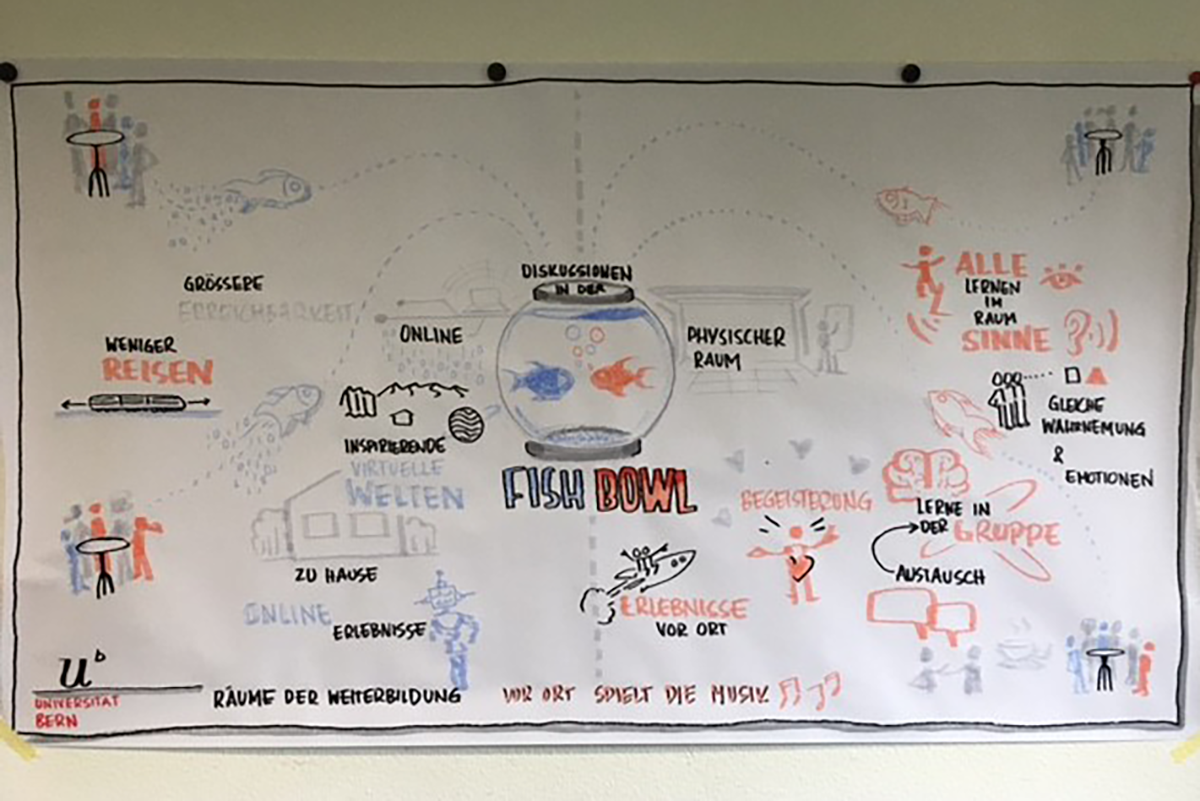 DISKUSSIONEN
IN DER
FISH BOWL
GRÖSSERE
ERREICHBARKEIT
WENIGER
REISEN
ONLINE
INSPIRIERENDE
VIRTUELLE
WELTEN
ZU HAUSE
ONLINE
ERLEBNISSE
PHYSISCHER
RAUM
ALLE
LERNEN
IM
RAUM
SINNE
GLEICHE
WAHRNEMUNG
&
EMOTIONEN
BEGEISTERUNG
LERNE IN
DER GRUPPE
AUSTAUSCH
ERLEBNISSE
VOR ORT
u^b
UNIVERSITÄT
BERN
RÄUME DER WEITERBILDUNG
VOR ORT SPIELT DIE MUSIK